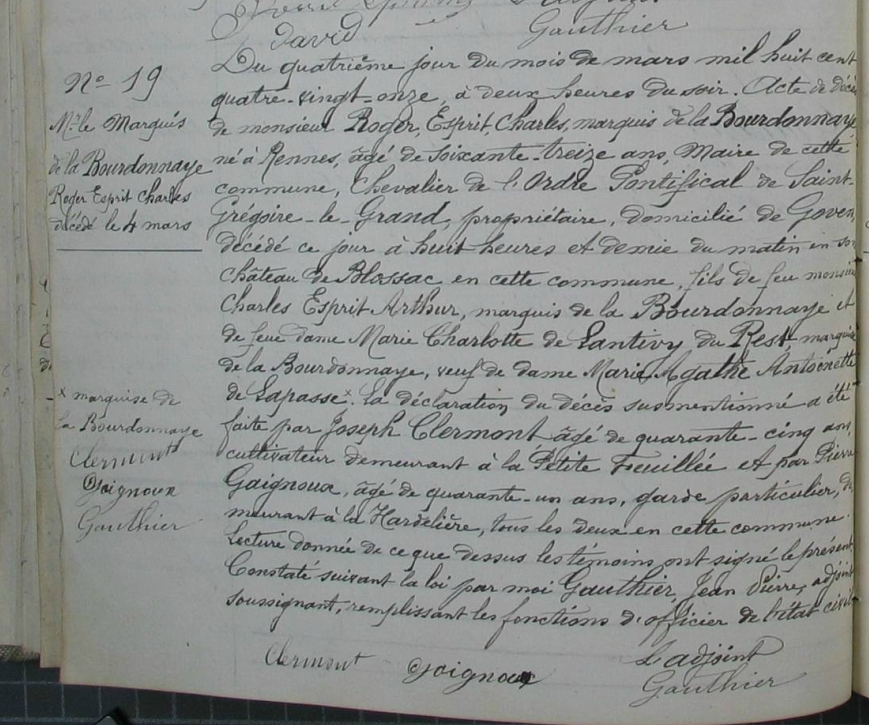 David
Gauthier
No 19
Mr. le Marquis
de la Bourdonnaye
Roger Esprit Charles
décédé le 4 mars
Du quatrième jour du mois de mars mil huit cent
quatre-vingt-onze, à deux heures du soir. Acte de décès
de monsieur Roger, Esprit, Charles, marquis de la Bourdonnaye
né à Rennes, âgé de soixante-treize ans, Maire de cette
commune, Chevalier de l'Ordre Pontifical de Saint-
Grégoire-le-Grand, propriétaire, domicilié de Goven,
décédé ce jour à huit heures et demie du matin en son
château de Blossac en cette commune, fils de feu monsieur
Charles Esprit Arthur, marquis de la Bourdonnaye et
de feue dame Marie Charlotte de Lantivy du Rest, marquise
de la Bourdonnaye, veuf de dame Marie, Agathe Antoinette
de Lapasse x. La déclaration du décès susmentionné a été
faite par Joseph Clermont âgé de quarante-cinq ans,
cultivateur demeurant à la Petite Feuillée et par Pierre
Gaignoux, âgé de quarante-un ans, garde particulier, de
meurant à la Hardelière, tous les deux en cette commune.
Lecture donnée de ce que dessus les témoins ont signé le présent.
Constaté suivant la loi par moi Gauthier, Jean Pierre, adjoint
soussignant, remplissant les fonctions d'officier de l'état civil.
x marquise de
la Bourdonnaye
Clermont
Gaignoux
Gauthier
Clermont Gaignoux L'adjoint
Gauthier